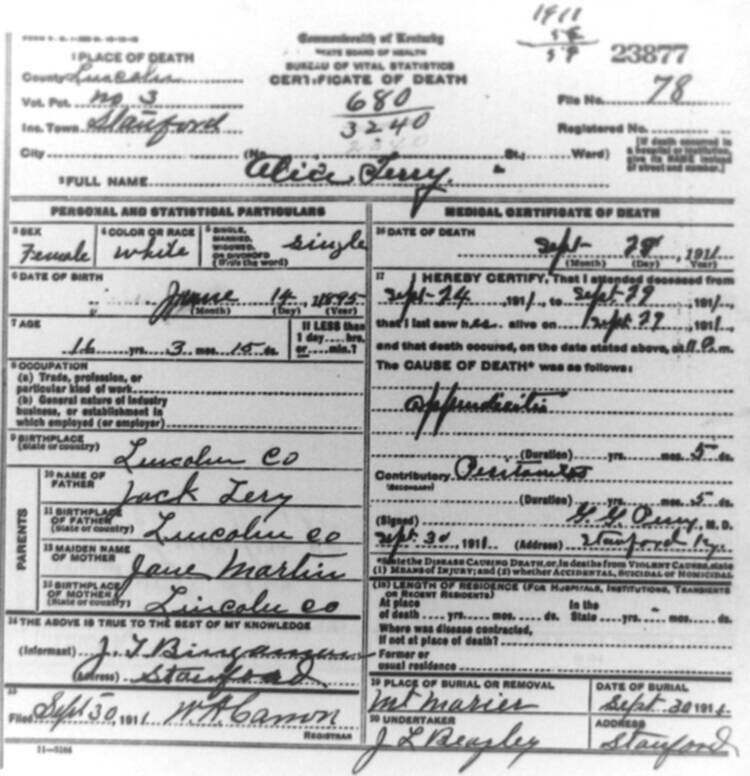 1911
23877
Commonwealth of Kentucky
STATE BOARD OF HEALTH
BUREAU OF VITAL STATISTICS
CERTIFICATE OF DEATH
1 PLACE OF DEATH
County Lincoln
Vot. Pct. no 3
Inc. Town Stanford
City (No. St.; Ward)
680
3240
File No. 78
Registered No.
[If death occurred in a hospital or institution, give its NAME instead of street and number.]
2 FULL NAME Alice Terry
PERSONAL AND STATISTICAL PARTICULARS
3 SEX
Female
4 COLOR OR RACE
white
5 SINGLE, MARRIED, WIDOWED, OR DIVORCED (Write the word)
single
6 DATE OF BIRTH
June 14, 1895
(Month) (Day) (Year)
7 AGE
16 yrs. 3 mos. 15 ds.
If LESS than 1 day....hrs. or....min.?
8 OCCUPATION
(a) Trade, profession, or particular kind of work
(b) General nature of industry business, or establishment in which employed (or employer)
9 BIRTHPLACE
(State or country)
Lincoln Co
PARENTS
10 NAME OF FATHER
Jack Tery
11 BIRTHPLACE OF FATHER
(State or country)
Lincoln co
12 MAIDEN NAME OF MOTHER
Jane Martin
13 BIRTHPLACE OF MOTHER
(State or country)
Lincoln co
14 THE ABOVE IS TRUE TO THE BEST OF MY KNOWLEDGE
(Informant) J. T.
(Address) Stanford
15
Filed Sept 30, 1911 W. A. Carson
REGISTRAR
11-3184
MEDICAL CERTIFICATE OF DEATH
16 DATE OF DEATH
Sept- 1911
(Month) (Day) (Year)
17 I HEREBY CERTIFY, That I attended deceased from
Sept-24, 1911, to Sept-29, 1911,
that I last saw her alive on Sept 29, 1911,
and that death occured, on the date stated above, at m.
The CAUSE OF DEATH* was as follows:
appendicitis
(Duration) yrs. mos. 5 ds.
Contributory Peritonitis
(SECONDARY)
(Duration) yrs. mos. 5 ds.
(Signed) M. D.
Sept. 30, 1911 (Address) Stanford Ky.
*State the DISEASE CAUSING DEATH, or, in deaths from VIOLENT CAUSES, state (1) MEANS OF INJURY; and (2) whether ACCIDENTAL, SUICIDAL or HOMICIDAL.
(18) LENGTH OF RESIDENCE (FOR HOSPITALS, INSTITUTIONS, TRANSIENTS OR RECENT RESIDENTS)
At place of death yrs. mos. ds. In the State yrs. mos. ds.
Where was disease contracted,
If not at place of death?
Former or usual residence
19 PLACE OF BURIAL OR REMOVAL
Mt
DATE OF BURIAL
Sept. 30 1911
20 UNDERTAKER
J L Beazley
ADDRESS
Stanford